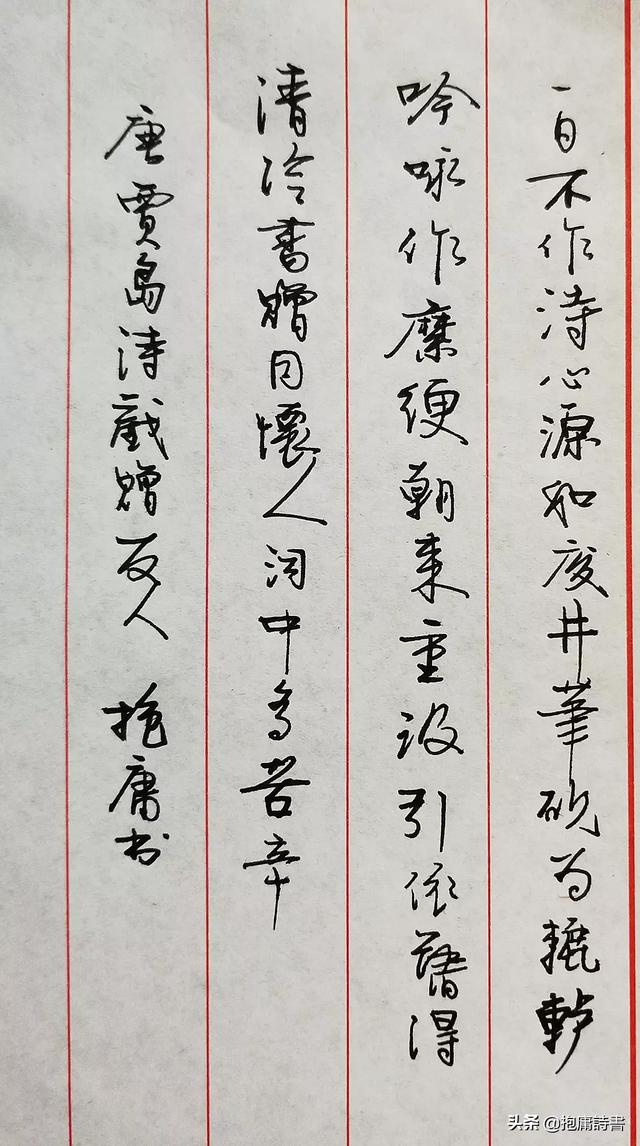 一日不作诗心源如废井笔砚为辘轳
吟咏作縻绠朝来重汲引依旧得
清冷书赠同怀人词中多苦辛
唐贾岛诗戏赠友人 抱庸书
头条 @抱庸詩書